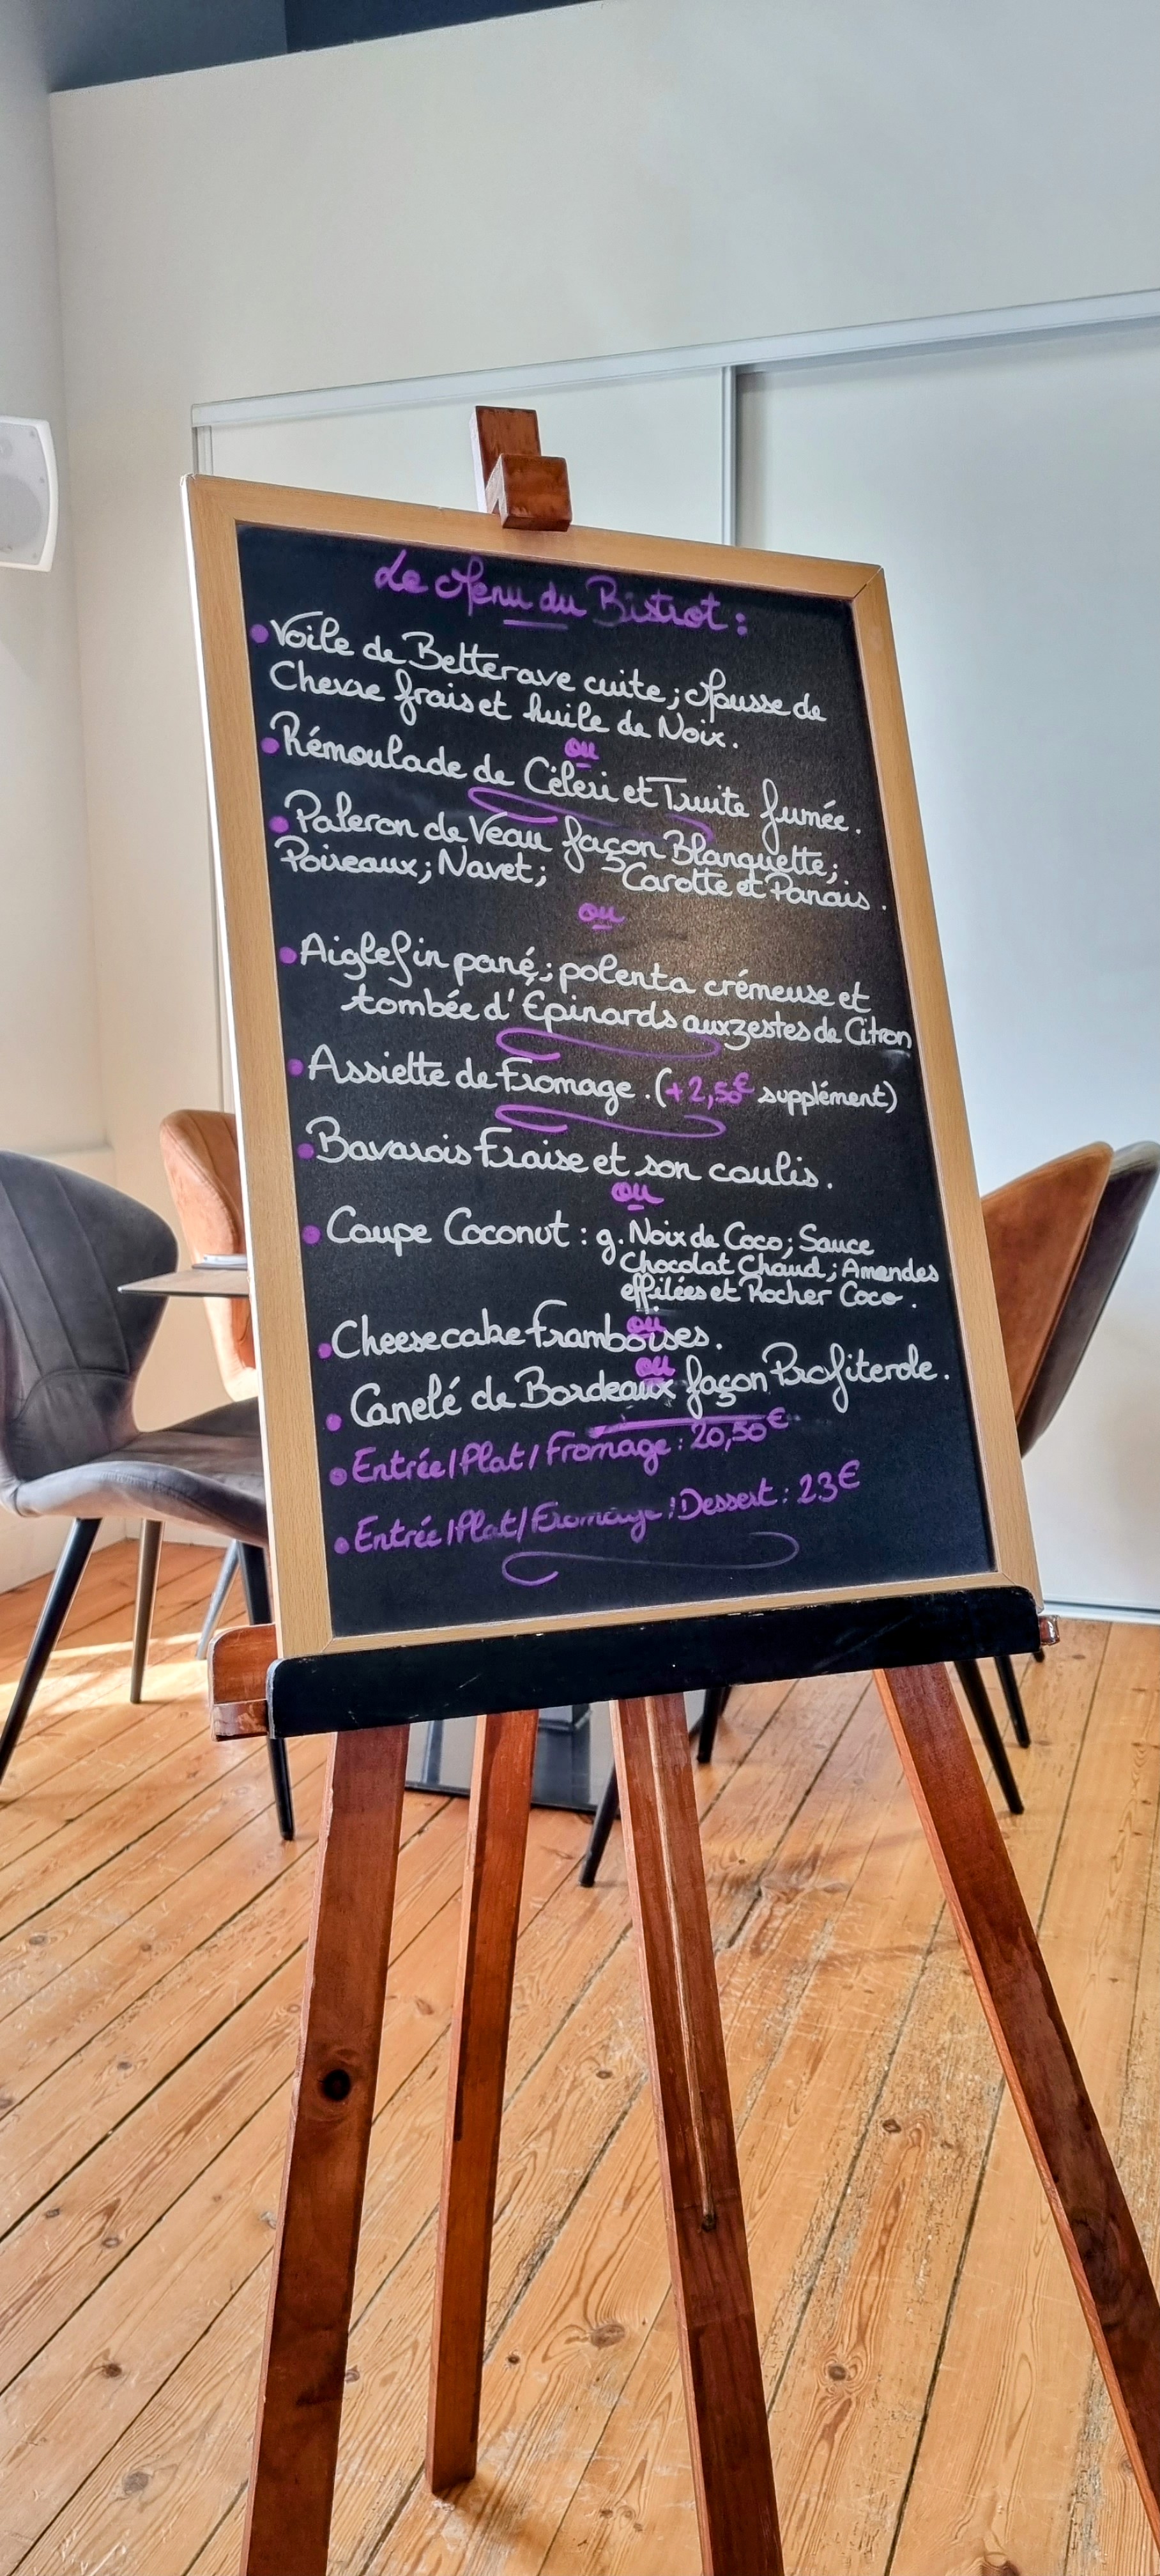 Le Menu du Bistrot :
• Voile de Betterave cuite ; Mousse de
Chevre frais et huile de Noix.
ou
• Rémoulade de Céleri et Truite fumée.
• Paleron de Veau façon Blanquette ;
Poireaux ; Navet ; Carotte et Panais.
ou
• Aiglefin pané ; polenta crémeuse et
tombée d'Epinards aux zestes de Citron
• Assiette de Fromage. (+ 2,50€ supplément)
• Bavarois Fraise et son coulis.
ou
• Coupe Coconut : g. Noix de Coco ; Sauce
Chocolat Chaud ; Amandes
effilées et Rocher Coco.
ou
• Cheesecake Framboises.
ou
• Canelé de Bordeaux façon Profiterole.
• Entrée/Plat/Fromage : 20,50€
• Entrée/Plat/Fromage/Dessert : 23€